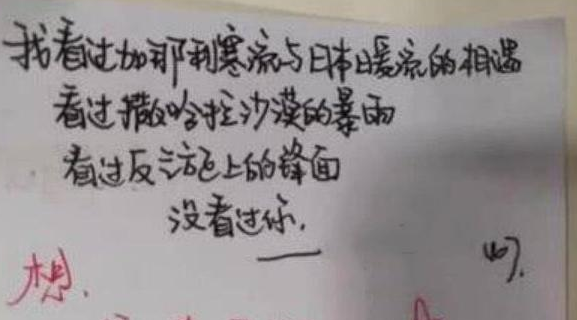 我看过加那利寒流与日本暖流的相遇
看过撒哈拉沙漠的暴雨
看过反气旋上的锋面
没看过你.
想.